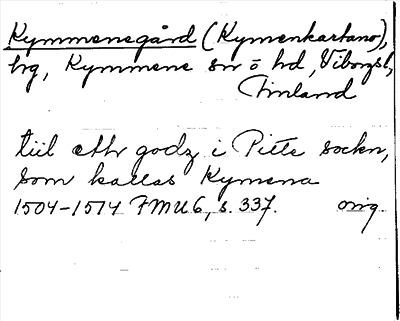 Kymmenegård (Kymenkartano),
hg, Kymmene sn o hd, Viborgs l,
Finland
tiil ethr godz i Pitte sockn,
som kallas Kymena
1504-1514 FMU 6, s. 337. orig.